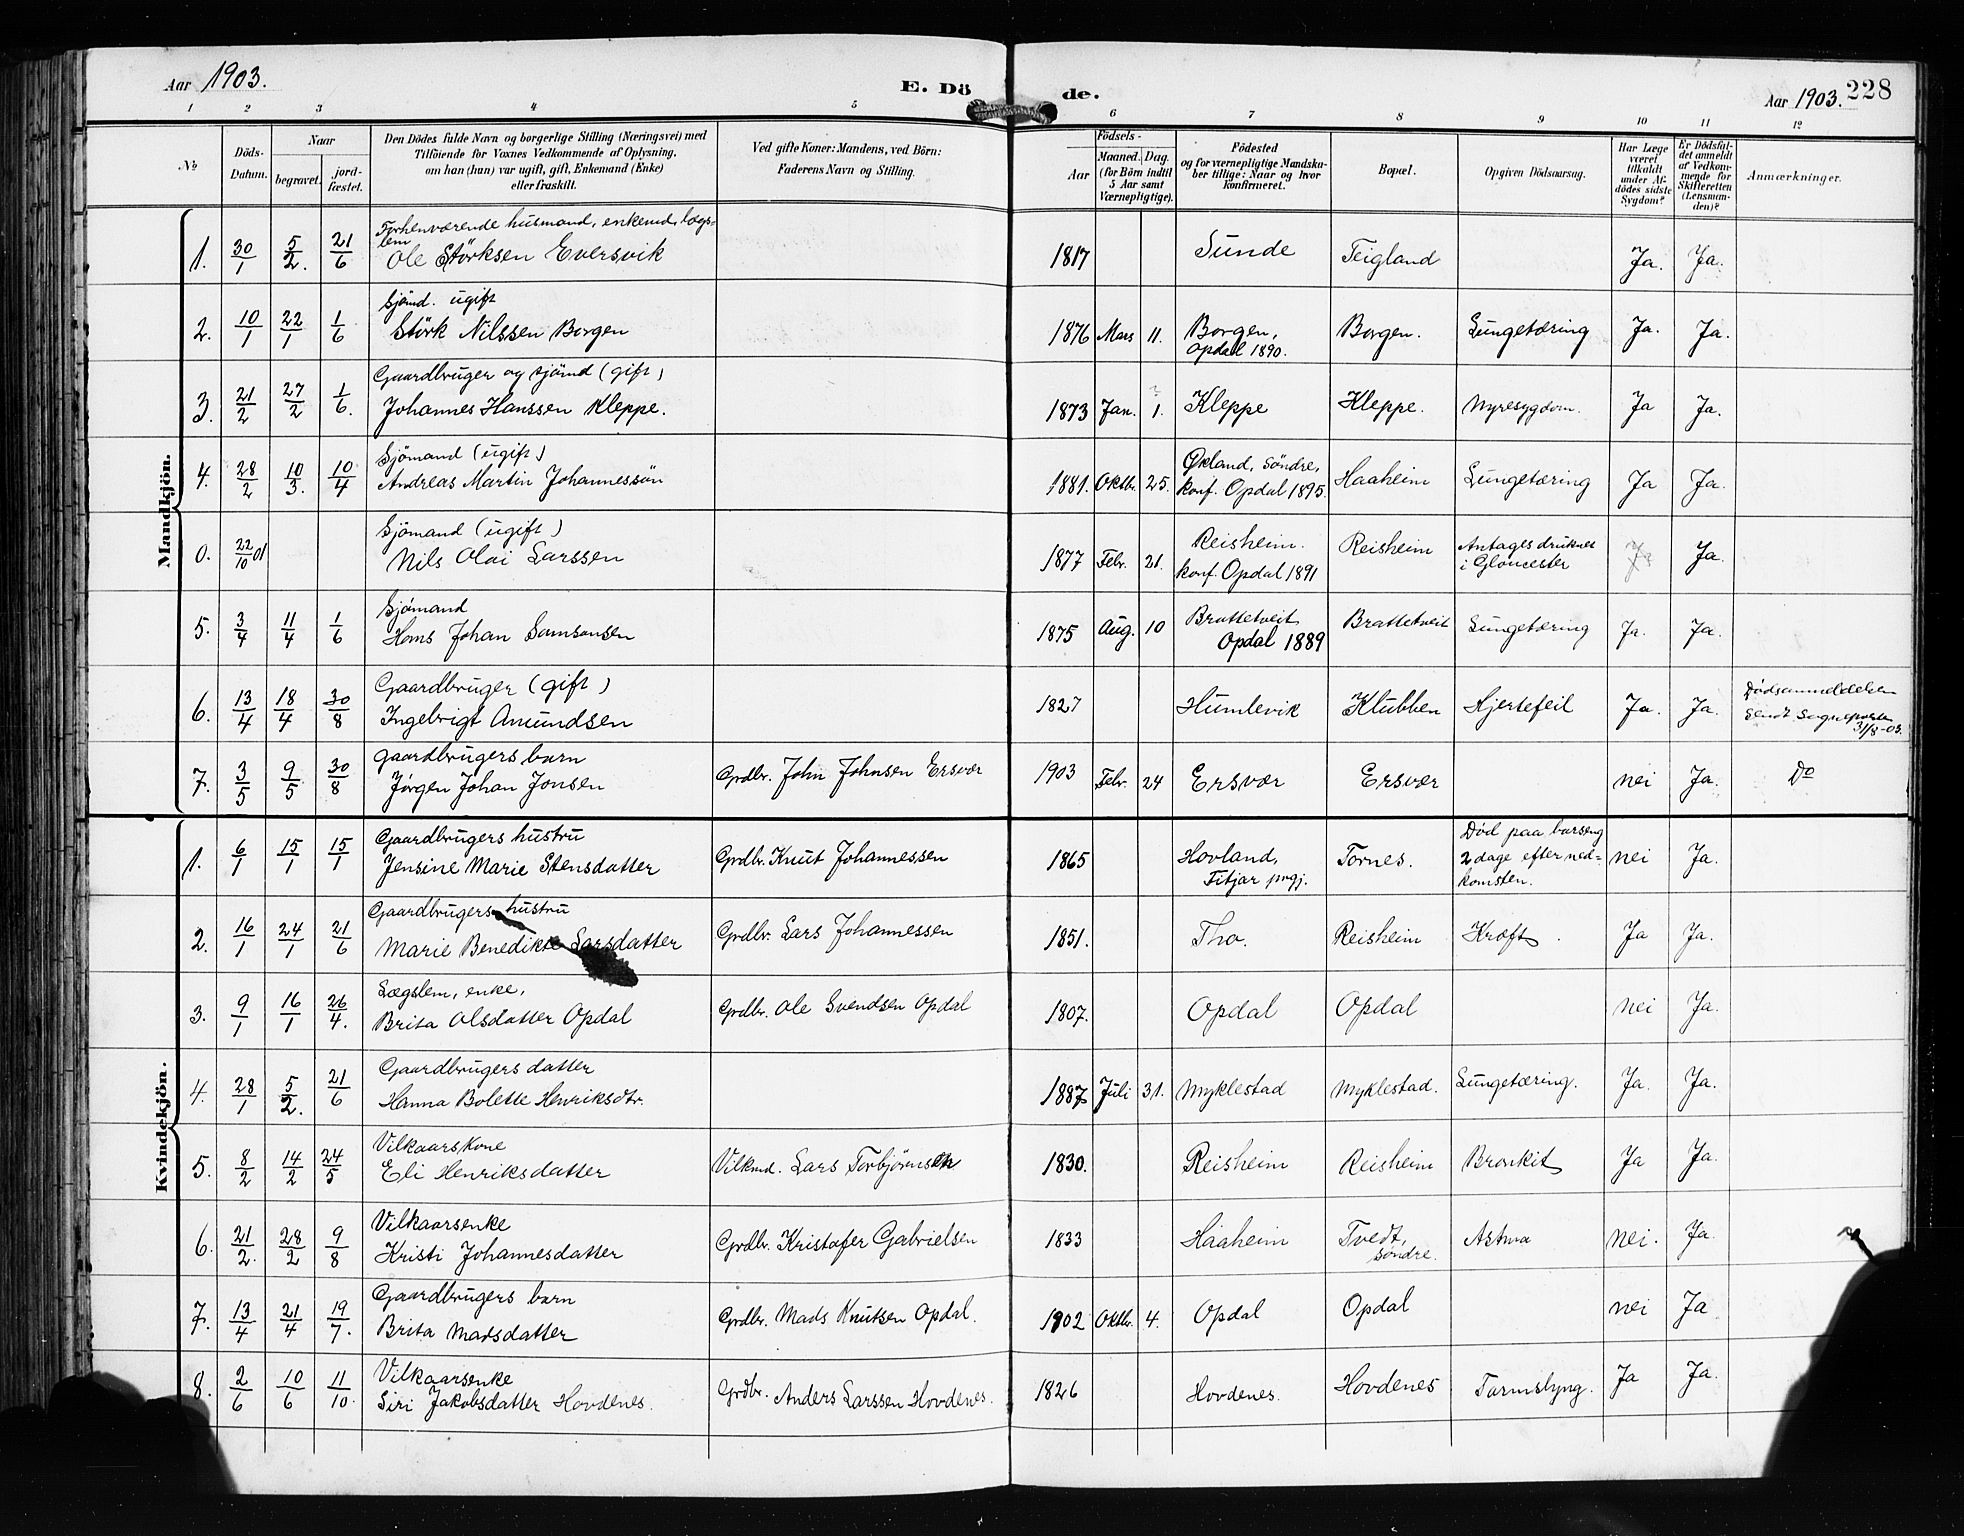 Aar 1903.
E. Dö
de.
Aar 1903.
228
1 2 3 4 5 6 7 8 9 10 11 12
No
Döds-Datum.
Naar
begravet.
jord-fæstet.
Den Dödes fulde Navn og borgerlige Stilling (Næringsvei) med
Tilföiende for Voxnes Vedkommende af Oplysning,
om han (hun) var ugift, gift, Enkemand (Enke)
eller fraskilt.
Ved gifte Koner: Mandens, ved Börn:
Faderens Navn og Stilling.
Födsels-
Aar
Maaned. Dag.
(for Börn indtil
5 Aar samt
Værnepligtige).
Födested
og for værnepligtige Mandska-
ber tillige: Naar og hvor
konfirmeret.
Bopæl.
Opgiven Dödsaarsag.
Har Læge
været
tilkaldt
under Af-
dödes sidste
Sygdom?
Er Dödsfal-
det anmeldt
af Vedkom-
mende for
Skifteretten
(Lensman-
den)?
Anmærkninger.
Mandkjön.
1. 30/1 5/2. 21/6 Forhenværende husmand, enkemd, lægs-
lem
Ole Störksen Eversvik 1817 Sunde Teigland Ja. Ja.
2. 10/1 22/1 1/6 Sjömd. ugift
Störk Nilssen Borgen 1876 Mars 11. Borgen,
Opdal 1890. Borgen. Lungetæring Ja. Ja.
3. 21/2 27/2 1/6. Gaardbruger og sjömd (gift)
Johannes Hanssen Kleppe. 1873 Jan. 1. Kleppe Kleppe. Nyresygdom. Ja Ja.
4. 28/2 10/3. 10/4 Sjömand (ugift)
Andreas Martin Johannessön 1881. Oktbr. 25. Økland, söndre,
konf. Opdal 1895. Haaheim Lungetæring Ja Ja.
0. 22/10 01 Sjömand (ugift)
Nils Olai Larssen 1877 Febr. 21. Reisheim.
konf. Opdal 1891 Reisheim Antages druknet
i Gloucester Ja Ja.
5. 3/4 11/4 1/6 Sjömand
Hans Johan Samsonsen 1875 Aug. 10 Brattetveit
Opdal 1889 Brattetveit Lungetæring Ja. Ja.
6. 13/4 18/4 30/8 Gaardbruger (gift)
Ingebrigt Amundsen 1827 Humlevik Klubben Hjertefeil Ja. Ja. Dödsanmeldelse
sendt Sogneprsten
31/8-03.
7. 3/5 9/5. 30/8 gaardbrugers barn
Jörgen Johan Jonsen Grdbr. John Johnsen Ersvær 1903 Febr. 24 Ersvær Ersvær nei Ja. Do
Kvindekjön.
1. 6/1 15/1 15/1 Gaardbrugers hustru
Jensine Marie Stensdatter Grdbr. Knut Johannessen 1865 Hovland,
Fitjar prgj. Tornes. Död paa barseng
2 dage efter ned=
komsten. nei Ja.
2. 16/1 24/1 21/6 Gaardbrugers hustru
Marie Benedikte Larsdatter Grdbr. Lars Johannessen 1851. Tho. Reisheim Kræft. Ja Ja.
3. 9/1 16/1 26/4. Lægslem, enke,
Brita Olsdatter Opdal Grdbr. Ole Svendsen Opdal 1807. Opdal Opdal nei Ja.
4. 28/1 5/2. 21/6 Gaardbrugers datter
Hanna Bolette Henriksdtr. 1887 Juli 31. Myklestad Myklestad. Lungetæring. Ja. Ja.
5. 8/2 14/2 24/5 Vilkaarskone
Eli Henriksdatter Vilkmd. Lars Torbjörnsen 1830. Reisheim Reisheim Bronkit Ja Ja.
6. 21/2. 28/2 9/8 Vilkaarsenke
Kristi Johannesdatter Grdbr. Kristofer Gabrielsen 1833 Haaheim Tvedt,
söndre. Astma nei. Ja.
7. 13/4 21/4 19/7. Gaardbrugers barn
Brita Madsdatter Grdbr. Mads Knutsen Opdal. 1902 Oktbr. 4. Opdal Opdal nei Ja
8. 2/6 10/6 11/10 Vilkaarsenke
Siri Jakobsdatter Hovdenes. Grdbr. Anders Larssen Hovdenes. 1826 Hovdenes. Hovdenes Tarmslyng. Ja Ja.